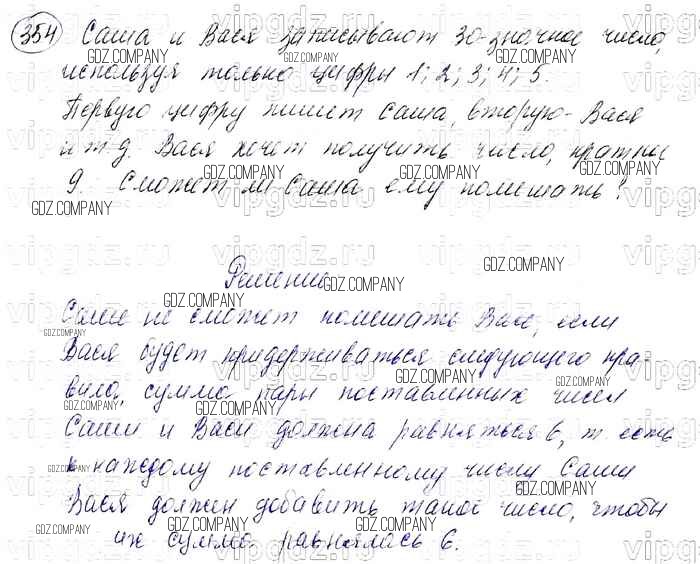 354 Саша и Вася записывают 30-значное число,
используя только цифры 1; 2; 3; 4; 5.
Первую цифру пишет Саша, вторую - Вася
и т. д. Вася хочет получить число, кратное
9. Сможет ли Саша ему помешать?
Решение
Саша не сможет помешать Васе, если
Вася будет придерживаться следующего пра-
вила, сумма пары поставленных чисел
Саши и Васи должна равняться 6, т. есть
к каждому поставленному числу Саши
Вася должен добавить такое число, чтобы
их сумма равнялась 6.
vipgdz.ru
GDZ.COMPANY